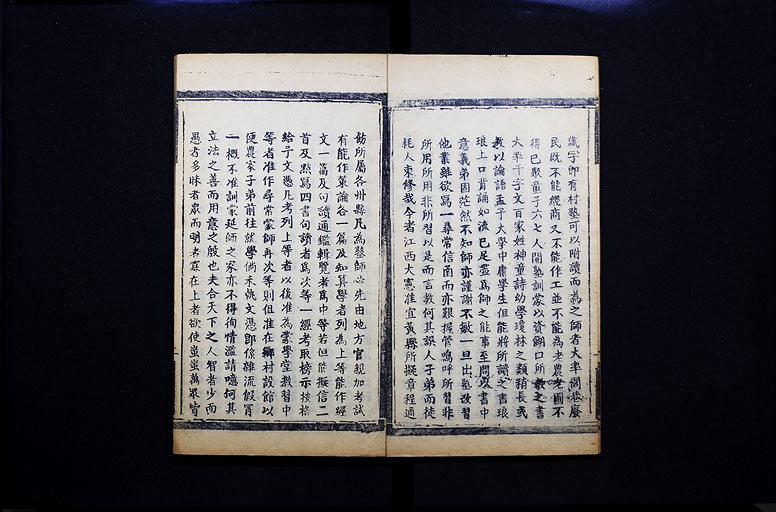 識字即有村塾可以附讀而為之師者大率閭巷廢
民既不能經商又不能作工並不能為老農老圃不
得已聚童子六七人開塾訓蒙以資餬口所教之書
大率千字文百家姓神童詩幼學瓊林之類稍長或
教以論語孟子大學中庸學生但能將所讀之書琅
琅上口背誦如流已足盡為師之能事至問以書中
意義弟固茫然不知師亦謹謝不敏一旦出塾改習
他業雖欲寫一尋常信函而亦艱握管嗚呼所習非
所用所用非所習以是而言教何其誤人子弟而徒
耗人束修哉今者江西大憲准宜黃縣所擬章程通
飭所屬各州縣凡為塾師必先由地方官親加考試
有能作策論各一篇及知算學者列為上等能作經
文一篇及句讀通鑑輯覽者為中等若但能擬信二
首及點寫四書句讀者為次等一經考取榜示按榜
給予文憑凡考列上等者以後准為蒙學堂教習中
等者准作尋常蒙師再次等則但准在鄉村設館以
便農家子弟前往就學倘未執文憑即係雜流假冒
一概不准訓蒙延師之家亦不得徇情濫請噫何其
立法之善而用意之殷也夫合天下之人智者少而
愚者多昧者眾而明者寡在上者欲使蚩蚩萬眾皆